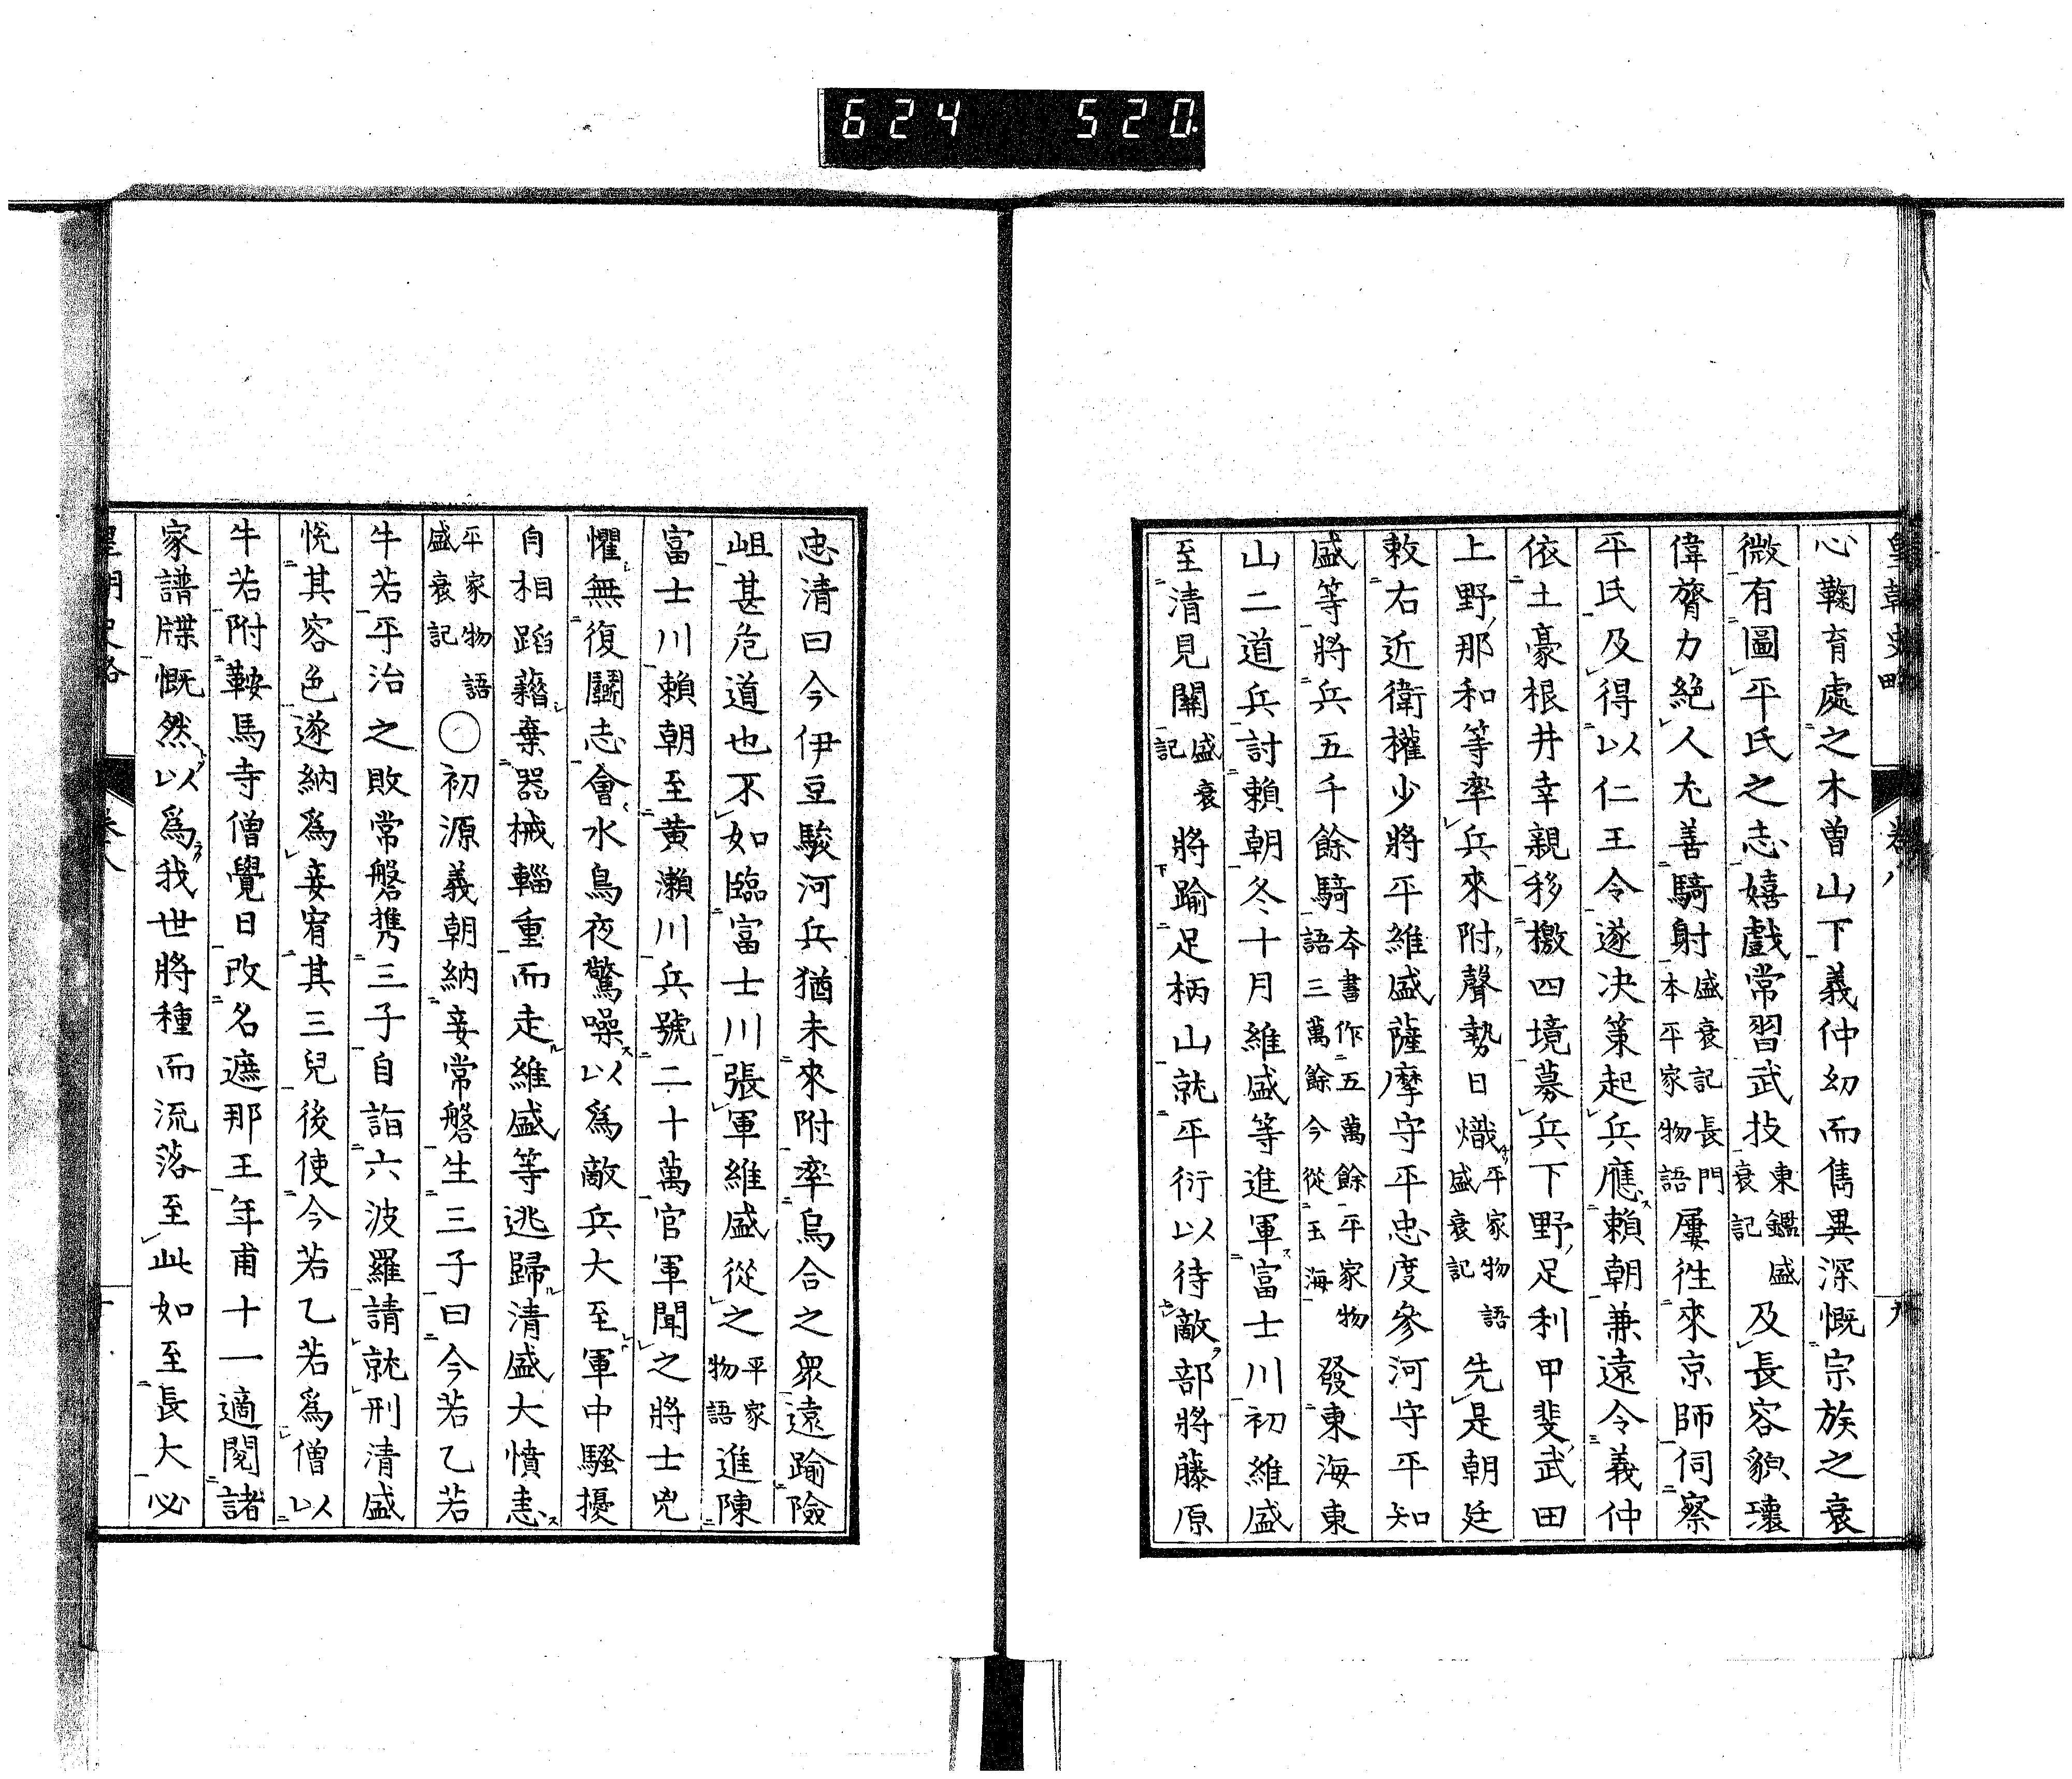 624 520
皇朝史略 卷八 九
心鞠育處之木曾山下義仲幼而雋異深慨宗族之衰
微有圖平氏之志嬉戲常習武技東鑑盛衰記及長容貌瓌
偉膂力絕人尤善騎射盛衰記長門本平家物語屢往來京師伺察
平氏及得以仁王令遂決策起兵應賴朝兼遠令義仲
依土豪根井幸親移檄四境募兵下野足利甲斐武田
上野那和等率兵來附聲勢日熾平家物語盛衰記先是朝廷
敕右近衛權少將平維盛薩摩守平忠度參河守平知
盛等將兵五千餘騎本書作五萬餘平家物語三萬餘今從玉海發東海東
山二道兵討賴朝冬十月維盛等進軍富士川初維盛
至清見關盛衰記將踰足柄山就平衍以待敵部將藤原
忠清曰今伊豆駿河兵猶未來附率烏合之眾遠踰險
岨甚危道也不如臨富士川張軍維盛從之平家物語進陳
富士川賴朝至黃瀨川兵號二十萬官軍聞之將士兇
懼無復鬪志會水鳥夜驚噪以為敵兵大至軍中騷擾
自相蹈藉棄器械輜重而走維盛等逃歸清盛大憤恚
平家物語盛衰記〇初源義朝納妾常磐生三子曰今若乙若
牛若平治之敗常磐携三子自詣六波羅請就刑清盛
悅其容色遂納為妾宥其三兒後使今若乙若為僧以
牛若附鞍馬寺僧覺日改名遮那王年甫十一適閱諸
家譜牒慨然以為我世將種而流落至此如至長大必
皇朝史略 卷八 十